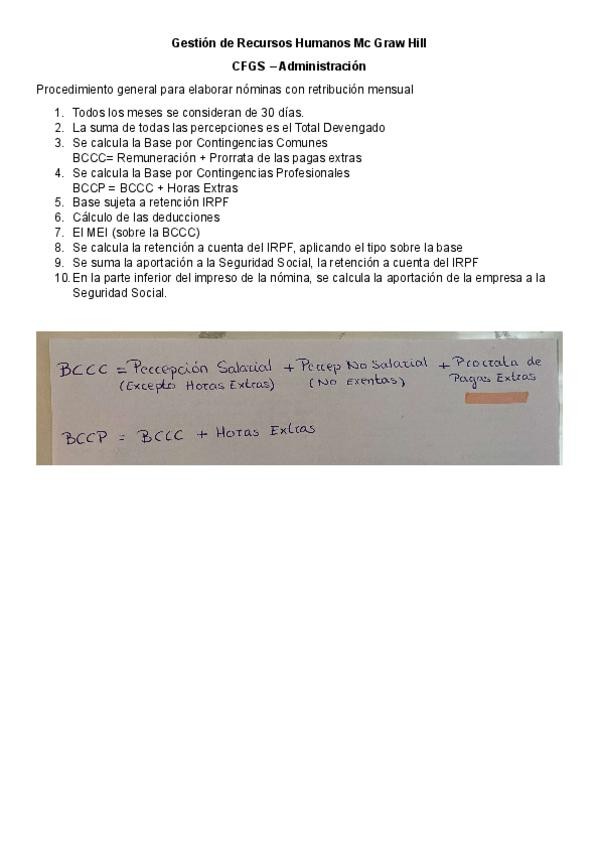 Gestión de Recursos Humanos Mc Graw Hill
CFGS – Administración
Procedimiento general para elaborar nóminas con retribución mensual
1. Todos los meses se consideran de 30 días.
2. La suma de todas las percepciones es el Total Devengado
3. Se calcula la Base por Contingencias Comunes
BCCC= Remuneración + Prorrata de las pagas extras
4. Se calcula la Base por Contingencias Profesionales
BCCP = BCCC + Horas Extras
5. Base sujeta a retención IRPF
6. Cálculo de las deducciones
7. El MEI (sobre la BCCC)
8. Se calcula la retención a cuenta del IRPF, aplicando el tipo sobre la base
9. Se suma la aportación a la Seguridad Social, la retención a cuenta del IRPF
10. En la parte inferior del impreso de la nómina, se calcula la aportación de la empresa a la
Seguridad Social.
BCCC = Percepción Salarial + Percep No Salarial + Prorrata de
(Excepto Horas Extras) (No Exentas) Pagas Extras
BCCP = BCCC + Horas Extras